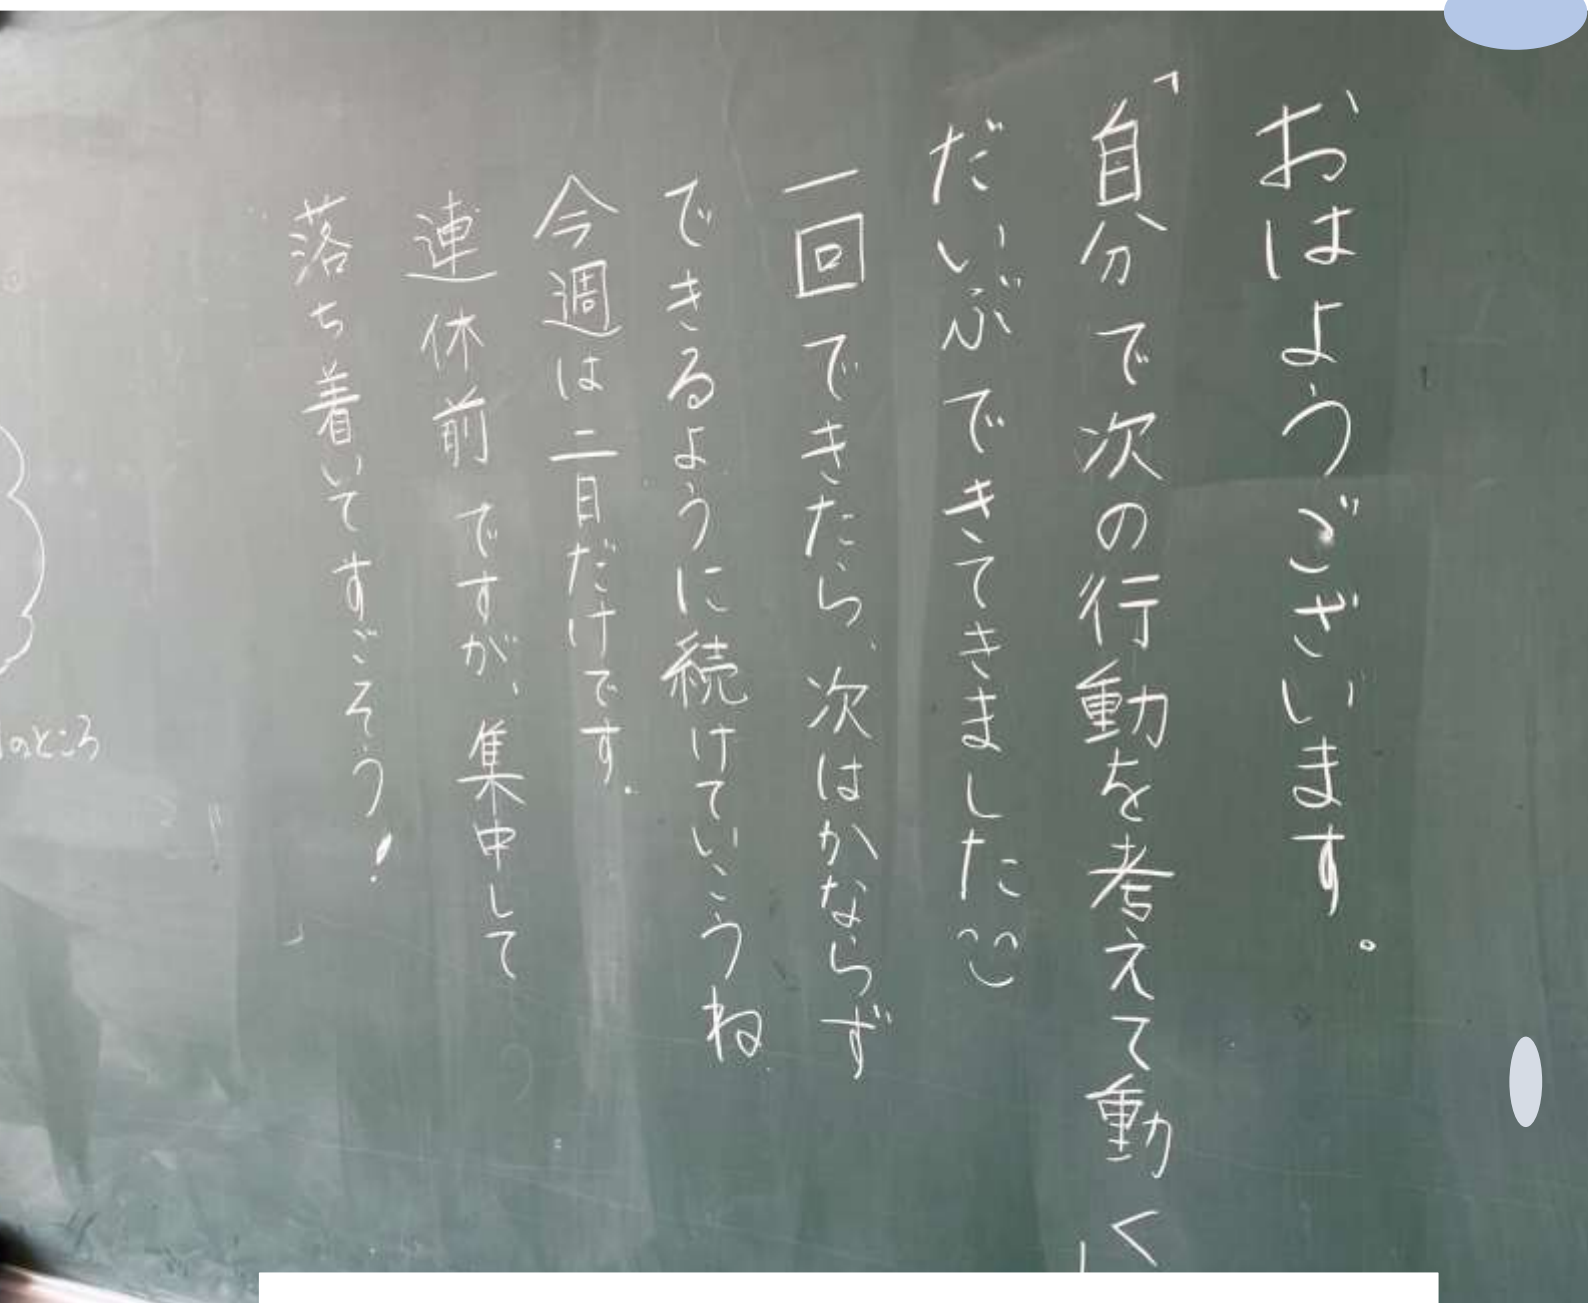 おはようございます。
「自分で次の行動を考えて動く」
だいぶできてきました
一回できたら、次はかならず
できるように続けていこうね
今週は二日だけです。
連休前ですが、集中して
落ち着いてすごそう!
のところ